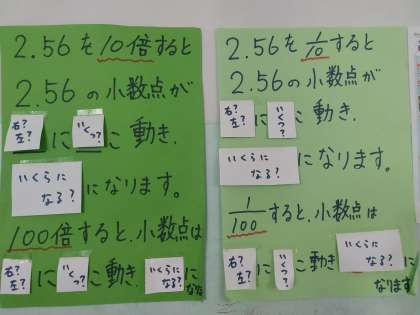 2.56を10倍すると
2.56の小数点が
右?左?にいくつ?こ動き.
いくらになる?になります。
100倍すると、小数点は
右?左?にいくつ?こ動き.いくらになる?にな
2.56を1/10すると
2.56の小数点が
右?左?にいくつ?こ動き.
いくらになる?になります.
1/100すると、小数点は
右?左?にいくつ?こ動きいくらになる?に
なります